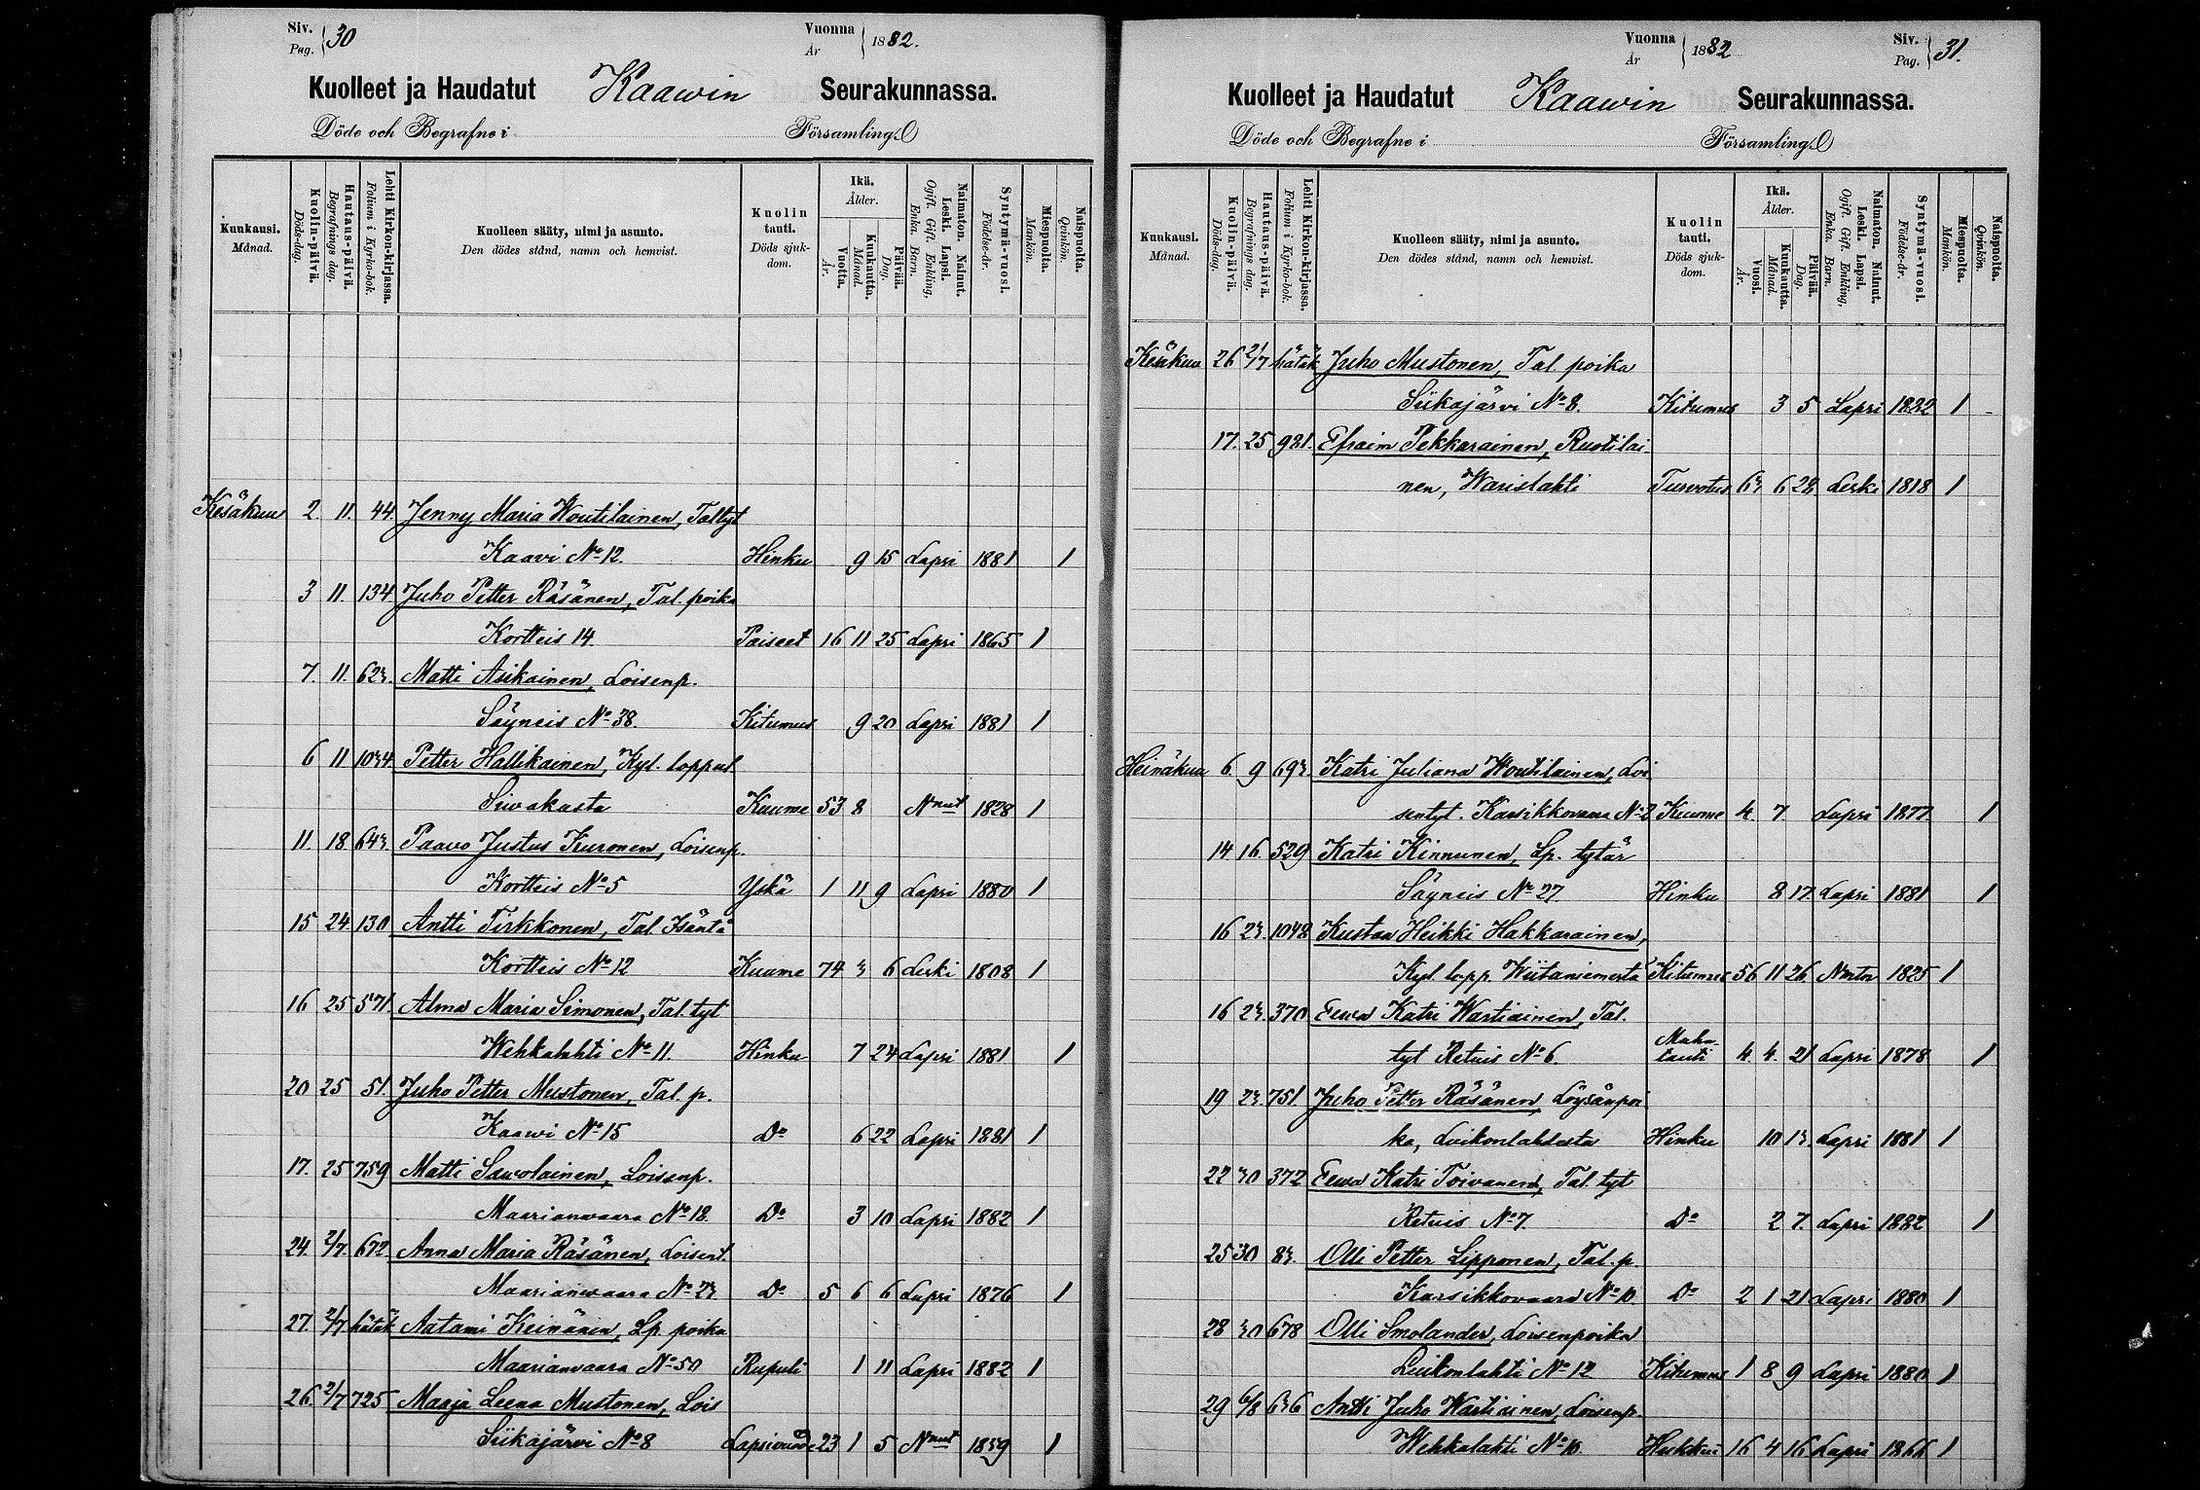 Siv. Pag. 30 Vuonna År 1882.
Kuolleet ja Haudatut Kaawin Seurakunnassa.
Döde och Begrafne i Församling
Kuukausi. Månad. Kuolin-päivä. Döds-dag. Hautaus-päivä. Begrafnings dag. Lehti Kirkon-kirjassa. Folium i Kyrko-bok. Kuolleen sääty, nimi ja asunto. Den dödes stånd, namn och hemvist. Kuolin tauti. Döds sjuk-dom. Ikä. Ålder. Vuotta. År. Kuukautta. Månad. Päivää. Dag. Naimaton. Nainut. Leski. Lapsi. Ogift. Gift. Enkling, Enka. Barn. Syntymä-vuosi. Födelse-år. Miespuolta. Mankön. Naispuolta. Qvinkön.
Kesäkuu 2. 11. 44 Jenny Maria Woutilainen, Tal tyt
Kaavi No 12. Hinku 9 15 Lapsi 1881 1
3 11. 134 Juho Petter Räsänen, Tal. poika
Kortteis 14. Paiseet 16 11 25 Lapsi 1865 1
7. 11. 623. Matti Asikainen, Loisenp.
Säyneis No 38. Kitumus 9 20 Lapsi 1881 1
6 11 1034 Petter Hallikainen, Kyl. loppul.
Siwakasta Kuume 53 8 Nnut 1828 1
11. 18 643 Paavo Justus Kuronen, Loisenp.
Kortteis No 5 Yskä 1 11 9 Lapsi 1880 1
15 24 130 Antti Tirkkonen, Tal Isäntä
Kortteis No 12 Kuume 74 3 6 Leski 1808 1
16 25 571. Alma Maria Simonen, Tal. tyt
Wehkalahti No 11. Hinku 7 24 Lapsi 1881 1
20 25 51. Juho Petter Mustonen, Tal. p.
Kaawi No 15 Do 6 22 Lapsi 1881 1
17. 25 759 Matti Sawolainen, Loisenp.
Maarianwaara No 18. Do 3 10 Lapsi 1882 1
24. 2/7 672 Anna Maria Räsänen, Loisent.
Maarianwaara No 23 Do 5 6 6 Lapsi 1876 1
27. 2/7 hätäk Aatami Keinänen, Lp. poika
Maarianvaara No 50 Rupuli 1 11 Lapsi 1882 1
26. 2/7 725 Maaja Leena Mustonen, Lois
Siikajärvi No 8 23 1 5 Nnut 1859 1
Vuonna År 1882 Siv. Pag. 31.
Kuolleet ja Haudatut Kaawin Seurakunnassa.
Döde och Begrafne i Församling
Kuukausi. Månad. Kuolin-päivä. Döds-dag. Hautaus-päivä. Begrafnings dag. Lehti Kirkon-kirjassa. Folium i Kyrko-bok. Kuolleen sääty, nimi ja asunto. Den dödes stånd, namn och hemvist. Kuolin tauti. Döds sjuk-dom. Ikä. Ålder. Vuosi. År. Kuukautta. Månad. Päivää. Dag. Naimaton. Nainut. Leski. Lapsi. Ogift. Gift. Enkling, Enka. Barn. Syntymä-vuosi. Födelse-år. Miespuolta. Mankön. Naispuolta. Qvinkön.
Kesäkuu 26 2/7 hätäk Juho Mustonen, Tal. poika
Siikajärvi No 8. Kitumus 3 5 Lapsi 1882 1
17. 25 921. Efraim Pekkarainen, Ruotilai-
nen, Warislahti Turvotus 63 6 28 Leski 1818 1
Heinäkuu 6. 9 693. Katri Juliana Woutilainen, Loi
sentyt. Karsikkovaara No 2 Kuume 4. 7 Lapsi 1877 1
14 16. 529 Katri Kinnunen, Lp. tytär
Säyneis No 27 Hinku 8 17 Lapsi 1881 1
16 23. 1048 Kustaa Heikki Hakkarainen,
Kyl. lopp. Wiitaniemestä Kitumus 56 11 26. Nmtn 1825 1
16 23. 370 Eewa Katri Wartiainen, Tal.
tyt Retuis No 6. Maha-tauti 4. 4. 21 Lapsi 1878 1
19 23. 751 Juho Petter Räsänen, Löysänpoi
ka, Luikonlahdesta Hinku 10 13. Lapsi 1881 1
22 30 372 Eewa Katri Toivanen, Tal. tyt
Retuis No 7. Do 2 7. Lapsi 1882 1
25 30 83. Olli Petter Lipponen, Tal. p.
Karsikkovaara No 10. Do 2 1 21 Lapsi 1880 1
28 30 678 Olli Smolander, Loisenpoika
Luikonlahti No 12 Kitumus 1 8 9 Lapsi 1880 1
29 6/8 636 Antti Juho Wartiainen, Loisenp.
Wehkalahti No 10. Hukkui 16 4 16 Lapsi 1866 1